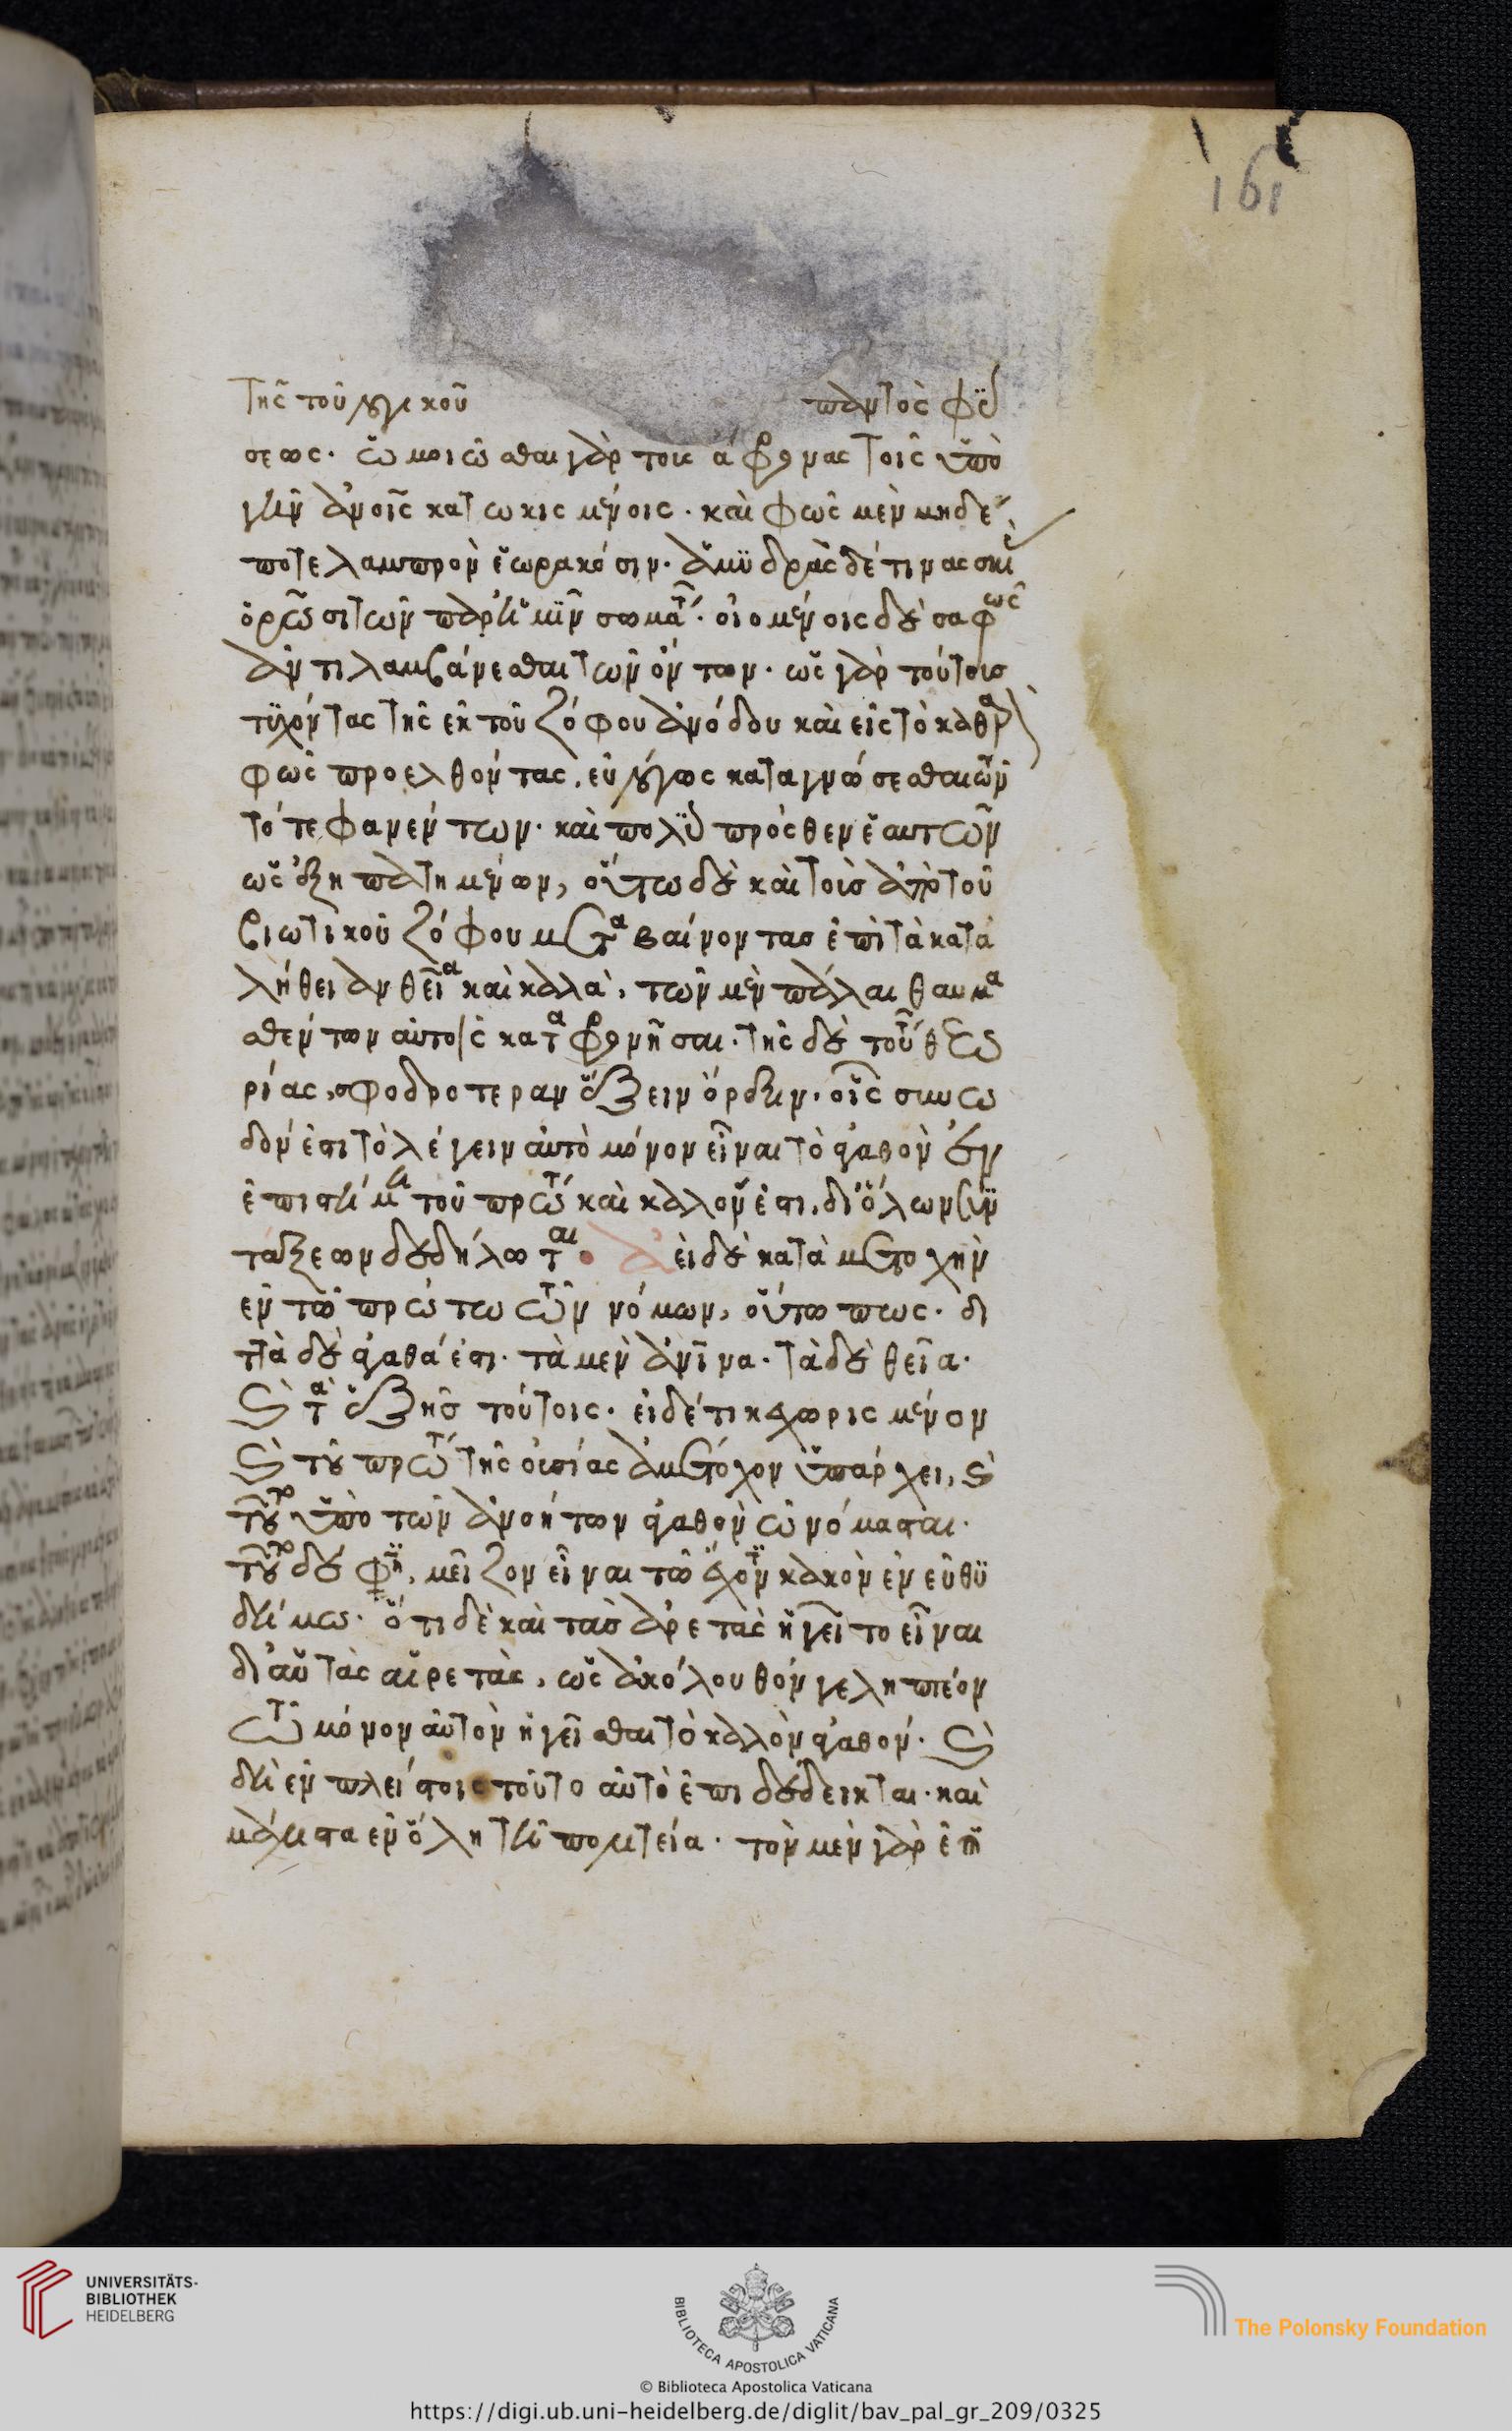 τῆς τοῦ λογικοῦ παντὸς φύ
σεως· ὡμοιῶσθαι γὰρ τοὺς ἄφρονας τοῖς ὑπὸ
γῆν ἀνοις κατωκισμένοις· καὶ φῶς μὲν μηδέ
ποτε λαμπρὸν ἑωρακόσιν· ἀμυδρὰς δέ τινας σκι
ὁρῶσι τῶν παρ' ἡμῖν σωμάτ· οἰομένοις δὲ σαφῶς
ἀντιλαμβάνεσθαι τῶν ὄντων. ὡς γὰρ τούτοις
τυχόντας τῆς ἐκ τοῦ ζόφου ἀνόδου καὶ εἰς τὸ καθαρ
φῶς προελθόντας, εὐλόγως καταγνώσεσθαι τῶν
τότε φανέντων· καὶ πολὺ πρόσθεν ἑαυτῶν
ὡς ἐξηπατημένων, οὕτω δὲ καὶ τοὺς ἀπὸ τοῦ
βιωτικοῦ ζόφου μεταβαίνοντας ἐπὶ τὰ κατὰ
λήθειαν θεῖα καὶ καλὰ, τῶν μὲν πάλαι θαυμα
σθέντων αὐτοῖς καταφρονῆσαι. τῆς δὲ τούτ θεω
ρίας, σφοδροτέραν ἕξειν ὄρεξιν. οἷς συνω
δόν ἐστι τὸ λέγειν αὐτὸ μόνον εἶναι τὸ ἀγαθὸν ἐν
ἐπιστήμη τοῦ πρώτ καὶ καλοῦ ἐστι, δι' ὅλων συν
τάξεων δεδήλωται· ἀεὶ δὲ κατὰ μετοχὴν
ἐν τῷ πρώτω τῶν νόμων, οὕτω πως. δι
ττὰ δὲ ἀγαθά ἐστι. τὰ μὲν ἀνινα. τὰ δὲ θεῖα.
καὶ τὰ ἑξῆς τούτοις. εἰ δέ τι κεχωρισμένον
καὶ τοῦ πρώτ τῆς οὐσίας ἀμέτοχον ὑπάρχει, καὶ
τοῦτο ὑπὸ τῶν ἀνοήτων ἀγαθὸν ὠνόμασται.
τοῦτο δέ φησιν, μεῖζον εἶναι τῷ ἔχοντι κακὸν ἐν εὐθυ
δήμω. ὅτι δὲ καὶ τὰς ἀρετὰς ἡγεῖτο εἶναι
δι' αὑτὰς αἱρετὰς, ὡς ἀκόλουθόν γε ληπτέον
τῶ μόνον αὐτὸν ἡγεῖσθαι τὸ καλὸν ἀγαθόν. καὶ
δὴ ἐν πλείστοις τοῦτο αὐτὸ ἐπιδέδεικται. καὶ
μάλιστα ἐν ὅλη τῆ πολιτεία. τὸν μὲν γὰρ ἐπι
161
UNIVERSITÄTS-
BIBLIOTHEK
HEIDELBERG
BIBLIOTECA APOSTOLICA VATICANA
© Biblioteca Apostolica Vaticana
The Polonsky Foundation
https://digi.ub.uni-heidelberg.de/diglit/bav_pal_gr_209/0325